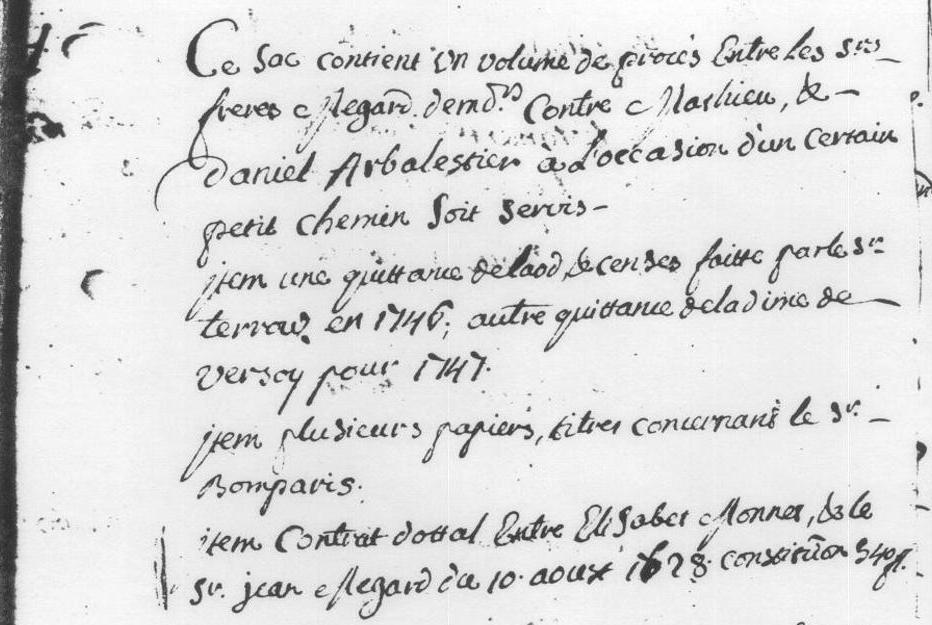 Ce sac contient un volume de procés Entre Les srs
freres Megard demdrs Contre Mathieu, &
Daniel Arbalestier à L'occasion d'un Certain
petit chemin soit servis
jtem une quittance de laod, & censes faitte par le sr
terraz en 1746; autre quittance de la dime de
versoy pour 1747.
jtem plusieurs papiers, titres concernant le sr.
Bomparis.
item Contrat dottal Entre Elisabet Monnet, & le
sr. jean Megard du 10. aoust 1628. constitũon